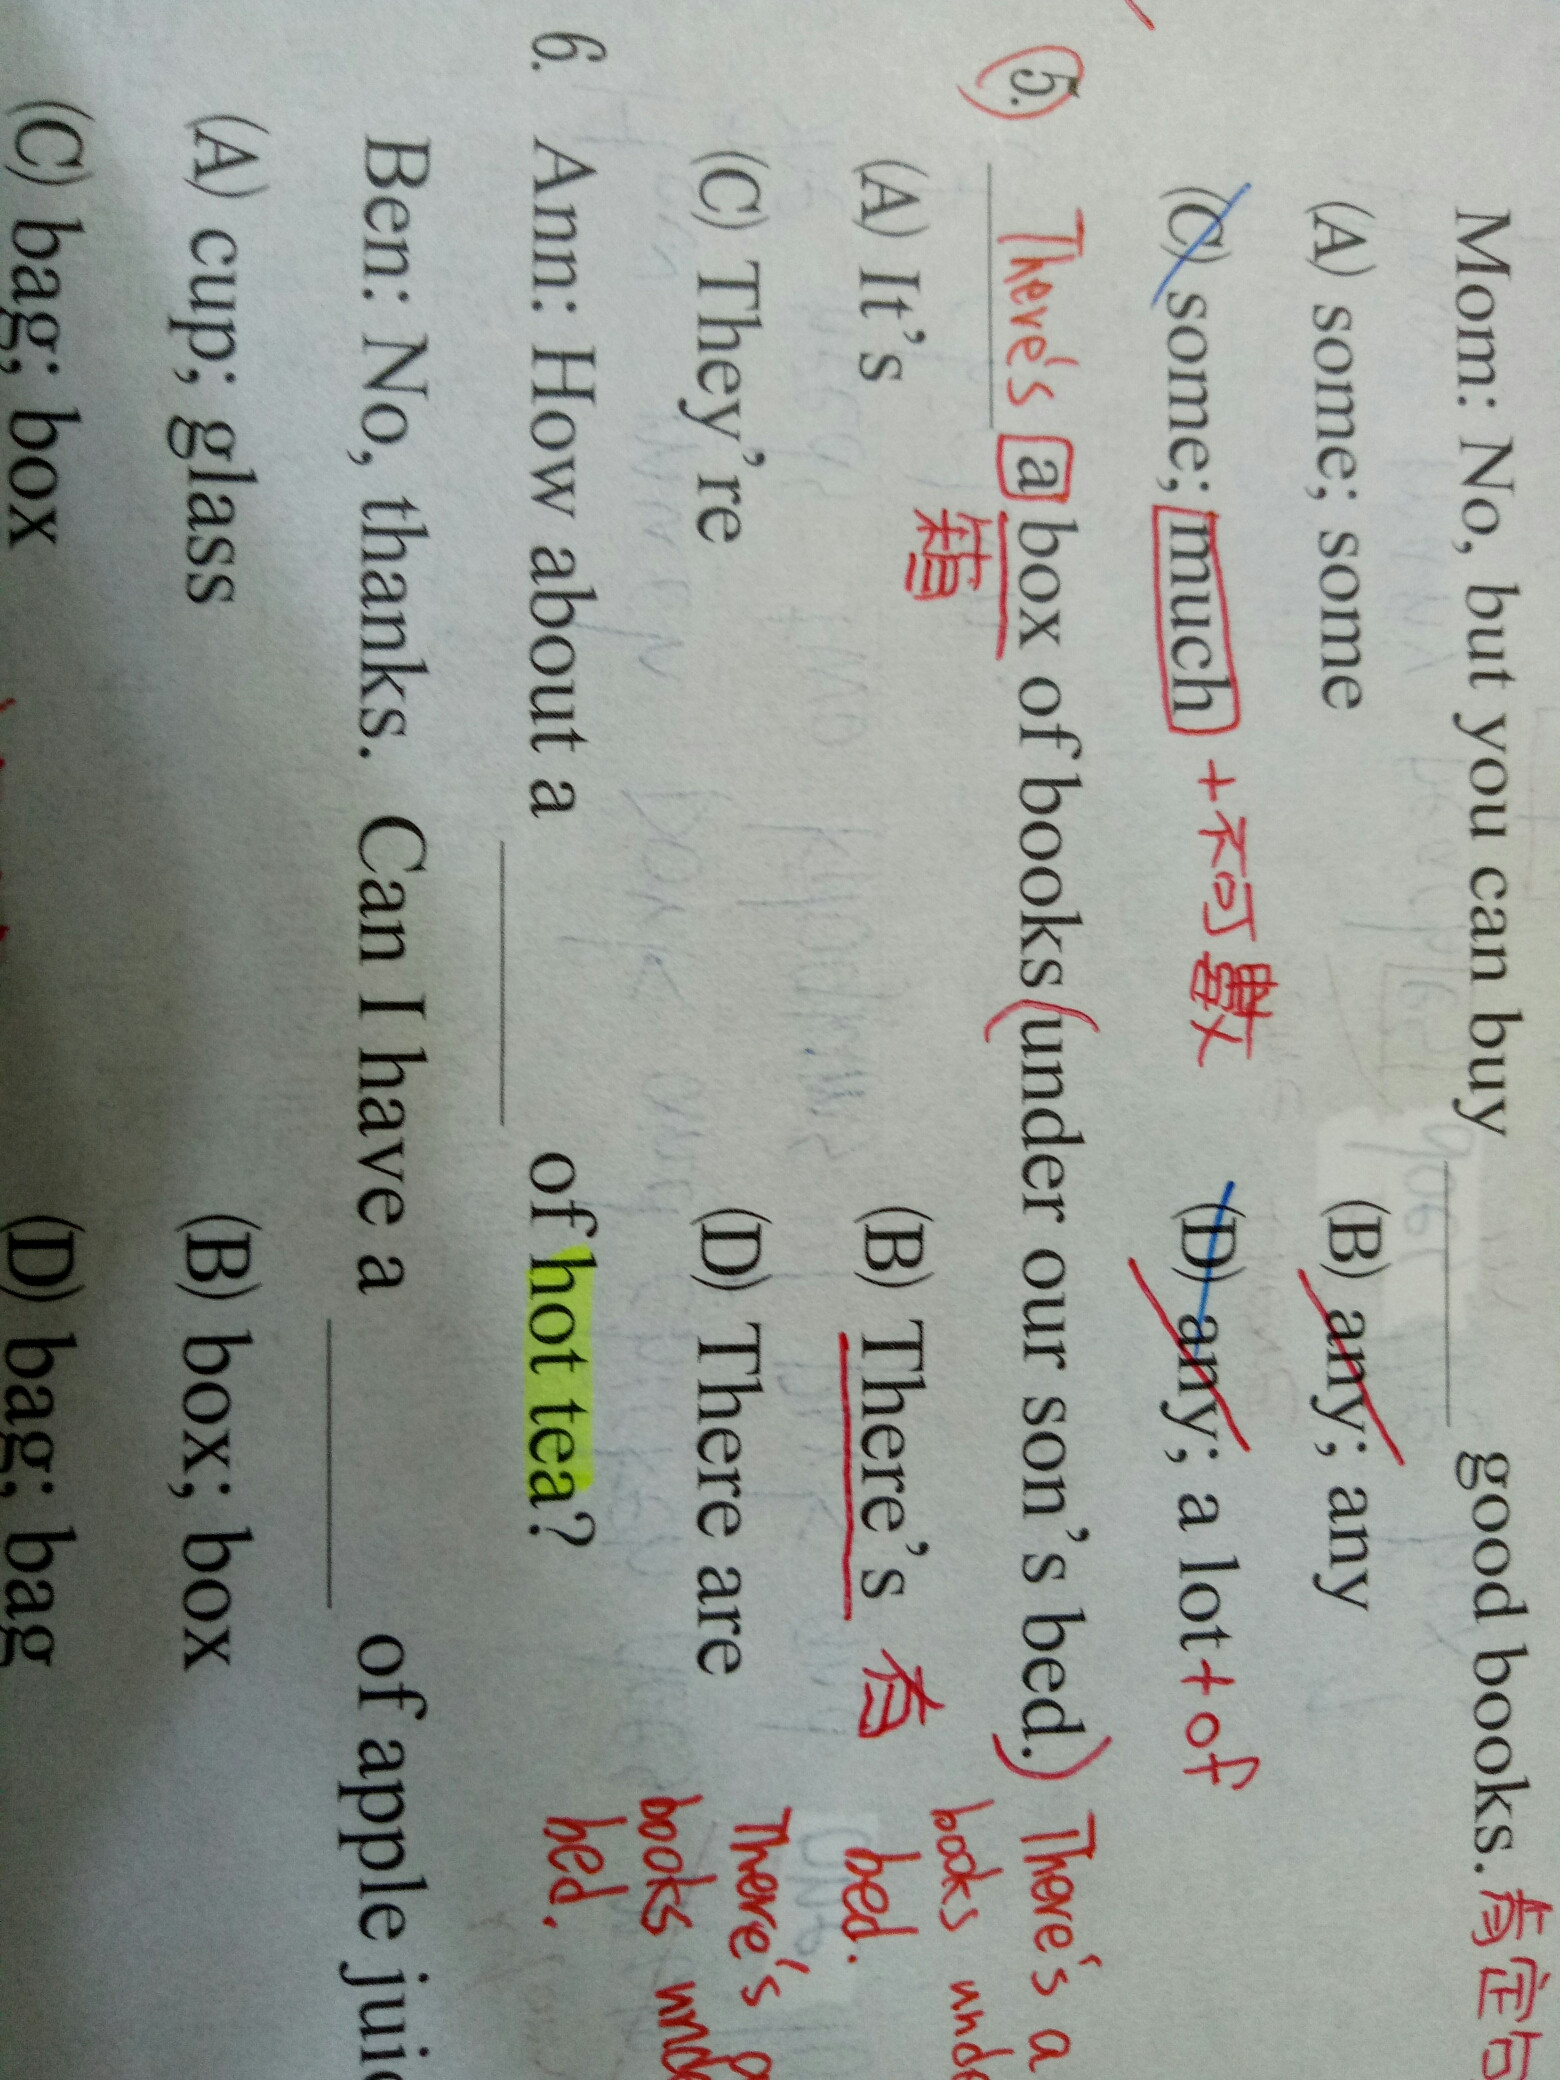 Mom: No, but you can buy ________ good books. 肯定句
(A) some; some (B) any; any
(C) some; much +不可數 (D) any; a lot + of
5. There's a box of books (under our son's bed.) There's a
箱 books unde
(A) It's (B) There's 有 bed.
(C) They're (D) There are There's a
books unde
bed.
6. Ann: How about a ________ of hot tea?
Ben: No, thanks. Can I have a ________ of apple juic
(A) cup; glass (B) box; box
(C) bag; box (D) bag; bag